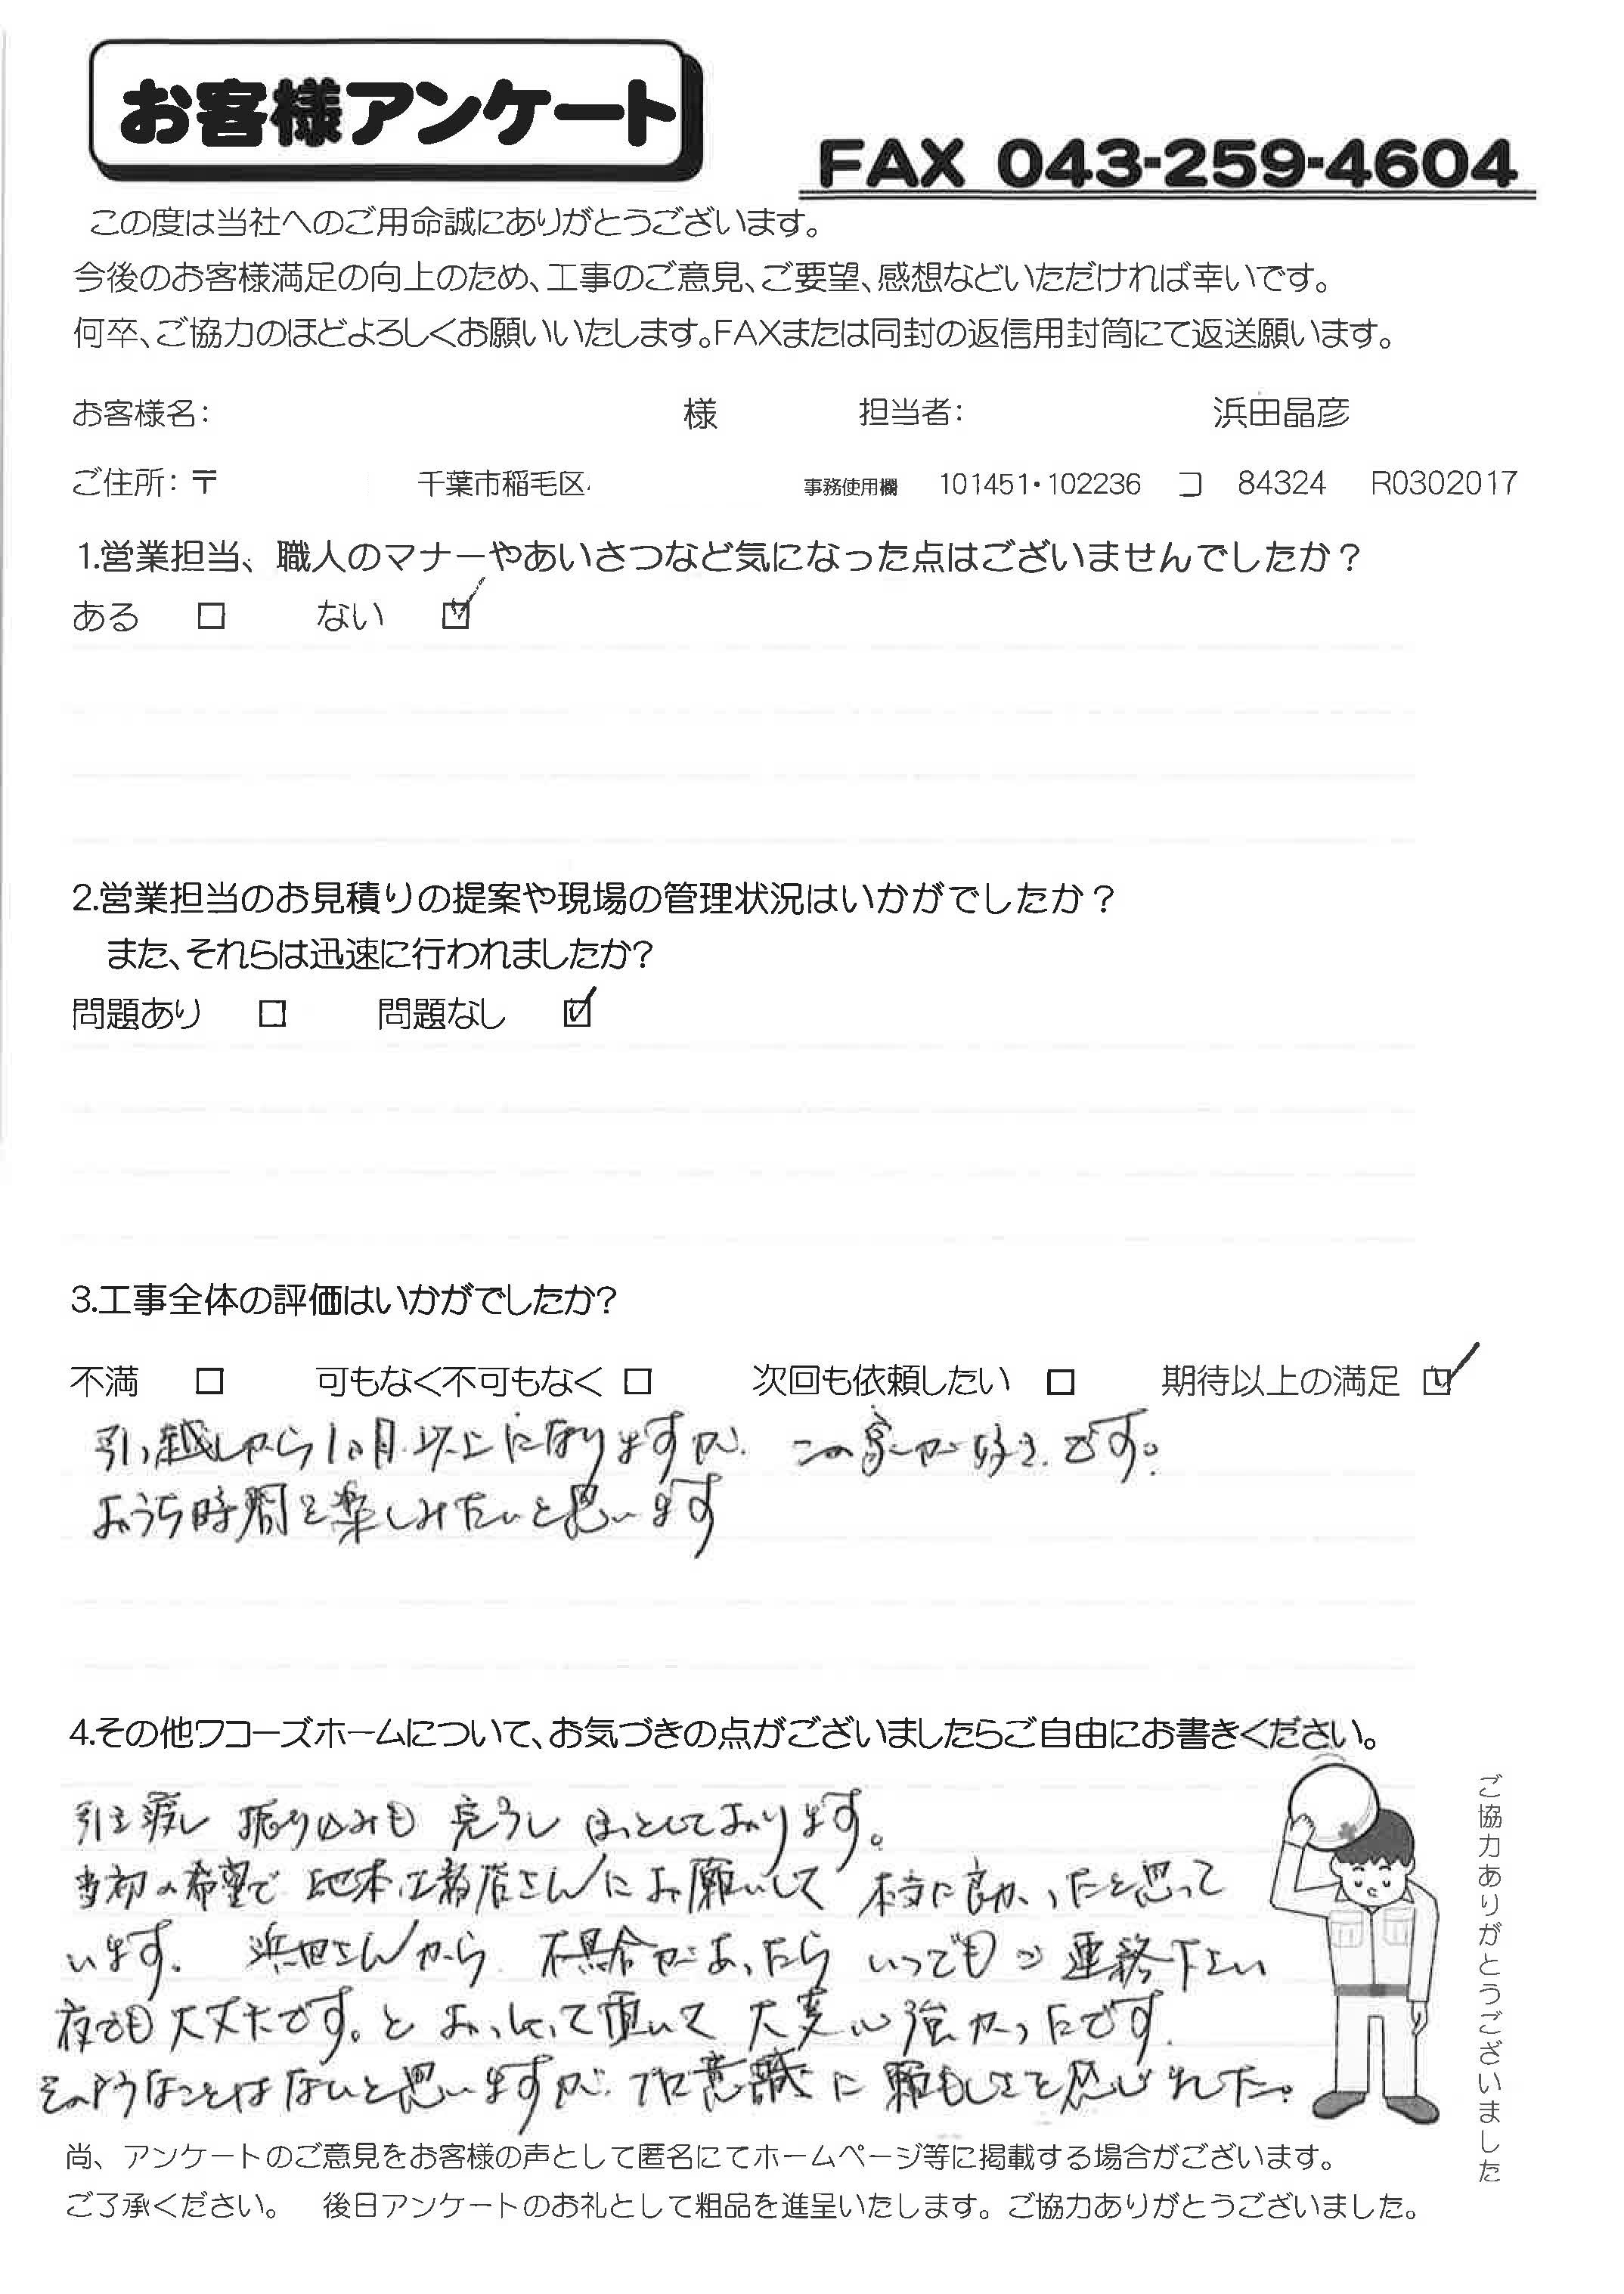 お客様アンケート
FAX 043-259-4604
この度は当社へのご用命誠にありがとうございます。
今後のお客様満足の向上のため、工事のご意見、ご要望、感想などいただければ幸いです。
何卒、ご協力のほどよろしくお願いいたします。FAXまたは同封の返信用封筒にて返送願います。
お客様名： 様 担当者： 浜田晶彦
ご住所：〒 千葉市稲毛区 事務使用欄 101451・102236 コ 84324 R0302017
1.営業担当、職人のマナーやあいさつなど気になった点はございませんでしたか？
ある □ ない ☑
2.営業担当のお見積りの提案や現場の管理状況はいかがでしたか？
また、それらは迅速に行われましたか?
問題あり □ 問題なし ☑
3.工事全体の評価はいかがでしたか?
不満 □ 可もなく不可もなく □ 次回も依頼したい □ 期待以上の満足 ☑
引っ越しから1ヵ月以上になりますが、この家が好きです。
おうち時間を楽しみたいと思います
4.その他ワコーズホームについて、お気づきの点がございましたらご自由にお書きください。
引き渡し 振り込みも 完了し ほっとしております。
当初の希望で 地本工務店さんにお願いして 本当に良かったと思って
います。 浜田さんから 不具合があったら いつでもご連絡下さい
夜でも大丈夫です。と おっしゃって頂いて 大変心強かったです.
そのようなことはないと思いますが、プロ意識に 頼もしさを感じれた。
尚、アンケートのご意見をお客様の声として匿名にてホームページ等に掲載する場合がございます。
ご了承ください。 後日アンケートのお礼として粗品を進呈いたします。ご協力ありがとうございました。
ご協力ありがとうございました